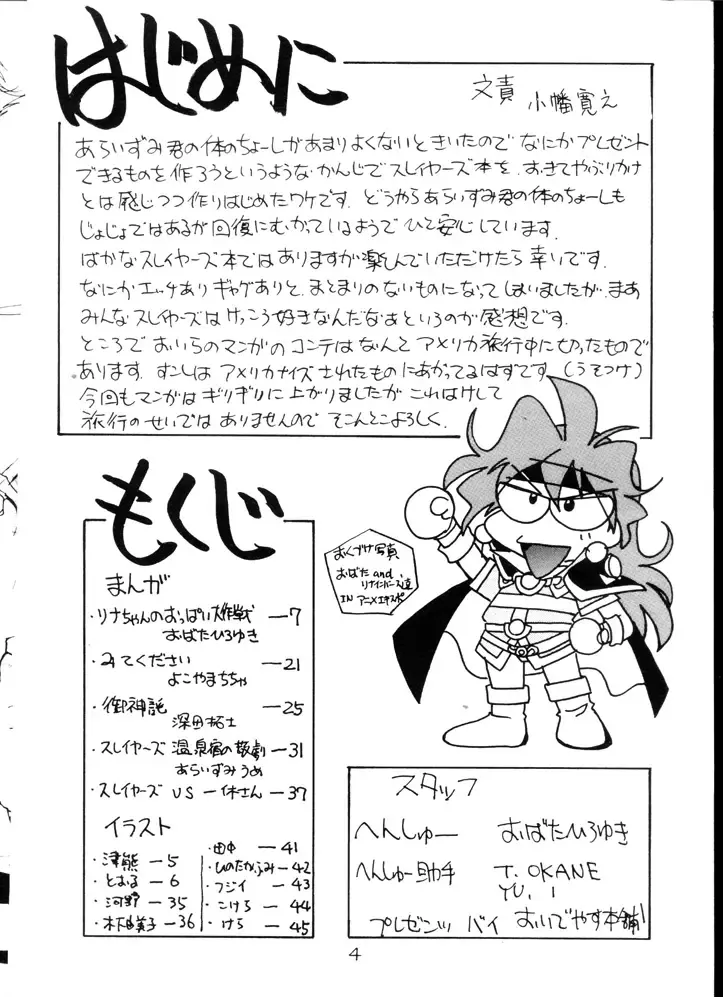 はじめに
文責
小幡寛之
あらいずみ君の体のちょーしがあまりよくないときいたのでなにかプレゼント
できるものを作ろうというような、かんじでスレイヤーズ本を、おきてやぶりかけ
とは感じつつ作りはじめたワケです。どうやらあらいずみ君の体のちょーしも
じょじょではあるが回復にむかっているようでひと安心しています。
ばかなスレイヤーズ本ではありますが楽しんでいただけたら幸いです。
なにかエッチありギャグありと、まとまりのないものになってしまいましたが、まあ
みんなスレイヤーズはけっこう好きなんだなあというのが感想です。
ところでおいらのマンガのコンテはなんとアメリカ旅行中に切ったもので
あります。すこしはアメリカナイズされたものにあがってるはずです。(うそつけ)
今回もマンガはギリギリに上がりましたがこれはけして
旅行のせいではありませんのでそこんとこよろしく。
もくじ
まんが
・リナちゃんのおっぱい大作戦 ー7
おばたひろゆき
・みてください ー21
よこやまちちゃ
・御神託 ー25
深田拓士
・スレイヤーズ 温泉宿の惨劇 ー31
あらいずみうめ
・スレイヤーズ VS 一休さん ー37
イラスト
・津熊 ー5
・とおる ー6
・河野 ー35
・木下 ー36
・田中 ー41
・ひのたかふみ ー42
・フジイ ー43
・こけら ー44
・けら ー45
おくづけ写真
おばた and
リナインバース達
IN アニメエキスポ
スタッフ
へんしゅー おばたひろゆき
へんしゅー助手 T. OKANE
YU. I
プレゼンツ バイ おいでやす本舗
4